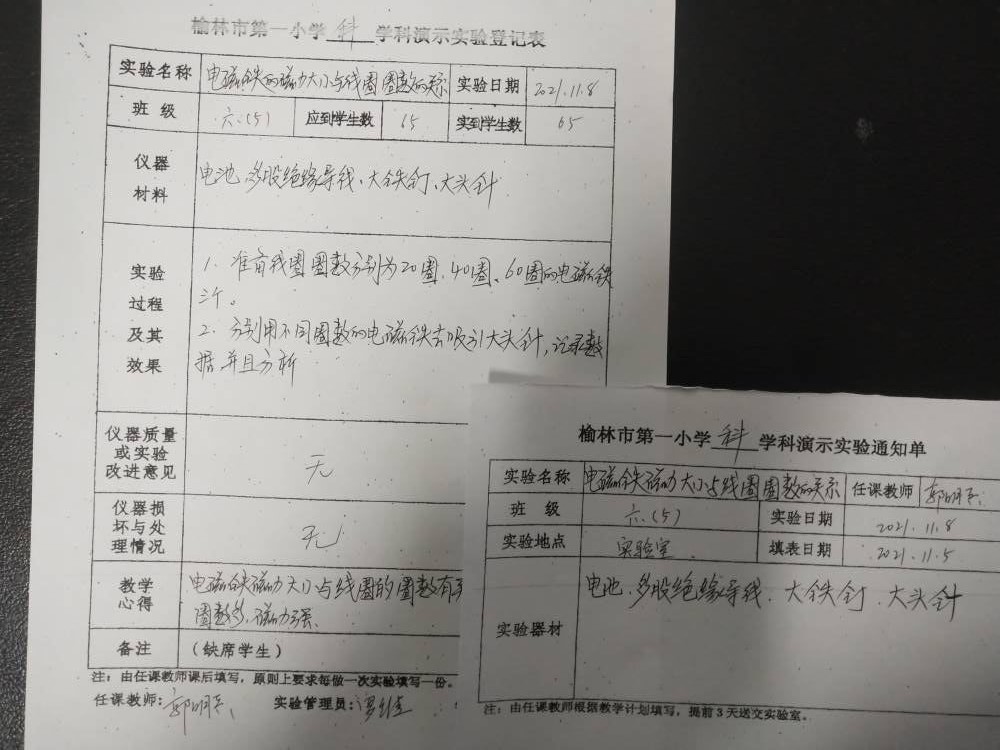 榆林市第一小学 科 学科演示实验登记表
实验名称 电磁铁的磁力大小与线圈圈数的关系 实验日期 2021.11.8
班 级 六.(5) 应到学生数 65 实到学生数 65
仪器
材料
电池、多股绝缘导线、大铁钉、大头针
实验
过程
及其
效果
1. 准备线圈圈数分别为20圈、40圈、60圈的电磁铁
三个。
2. 分别用不同圈数的电磁铁去吸引大头针,记录数
据并且分析
仪器质量
或实验
改进意见
无
仪器损
坏与处
理情况
无
教学
心得
电磁铁磁力大小与线圈的圈数有
圈数多,磁力强
备注 (缺席学生)
注:由任课教师课后填写,原则上要求每做一次实验填写一份。
任课教师: 实验管理员:
榆林市第一小学 科 学科演示实验通知单
实验名称 电磁铁磁力大小与线圈圈数的关系 任课教师
班 级 六.(5) 实验日期 2021.11.8
实验地点 实验室 填表日期 2021.11.5
实验器材
电池、多股绝缘导线、大铁钉、大头针
注:由任课教师根据教学计划填写,提前3天送交实验室。